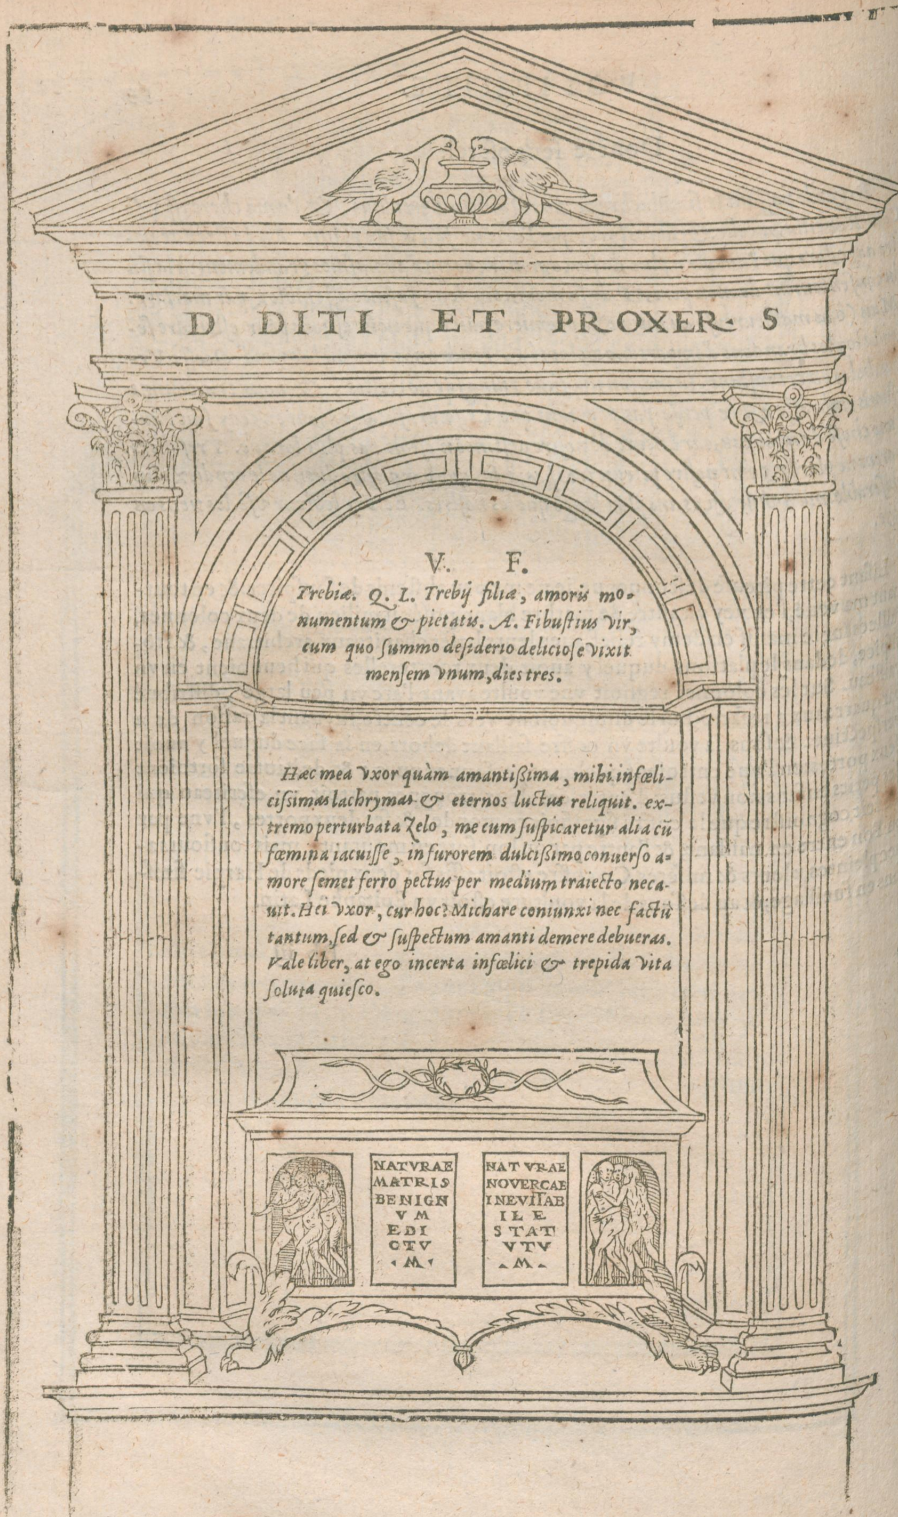 D DITI ET PROXER. S
V. F.
Trebiæ. Q. L. Trebij filiæ, amoris mo-
numentum & pietatis. Æ. Fibustius vir,
cum quo summo desiderio deliciose vixit
mensem vnum, dies tres.
Hæc mea vxor quàm amantißima, mihi infœli-
cissimas lachrymas & eternos luctus reliquit. ex-
tremo perturbata zelo, me cum suspicaretur alia cū
fœmina iacuisse, in furorem dulcißimo conuerso a-
more semet ferro pectus per medium traiecto neca-
uit. Hei vxor, cur hoc? Michare coniunxi nec factū
tantum, sed & suspectum amanti demere debueras.
Vale liber, at ego incerta infœlici & trepida vita
soluta quiesco.
NATVRAE
MATRIS
BENIGN
VM
EDI
CTV
M
NATVRAE
NOVERCAE
INEVITAB
ILE
STAT
VTV
M